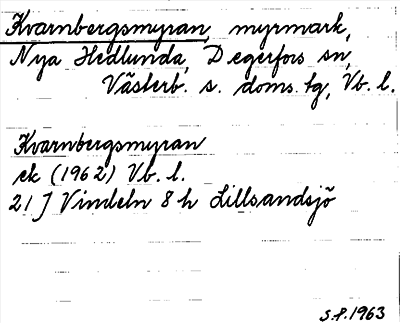 Kvarnbergsmyran, myrmark,
Nya Hedlunda, Degerfors sn,
Västerb. s. doms. tg, Vb. l.
Kvarnbergsmyran
ek (1962) Vb. l.
21 J Vindeln 8 h Lillsandsjö
S.P. 1963